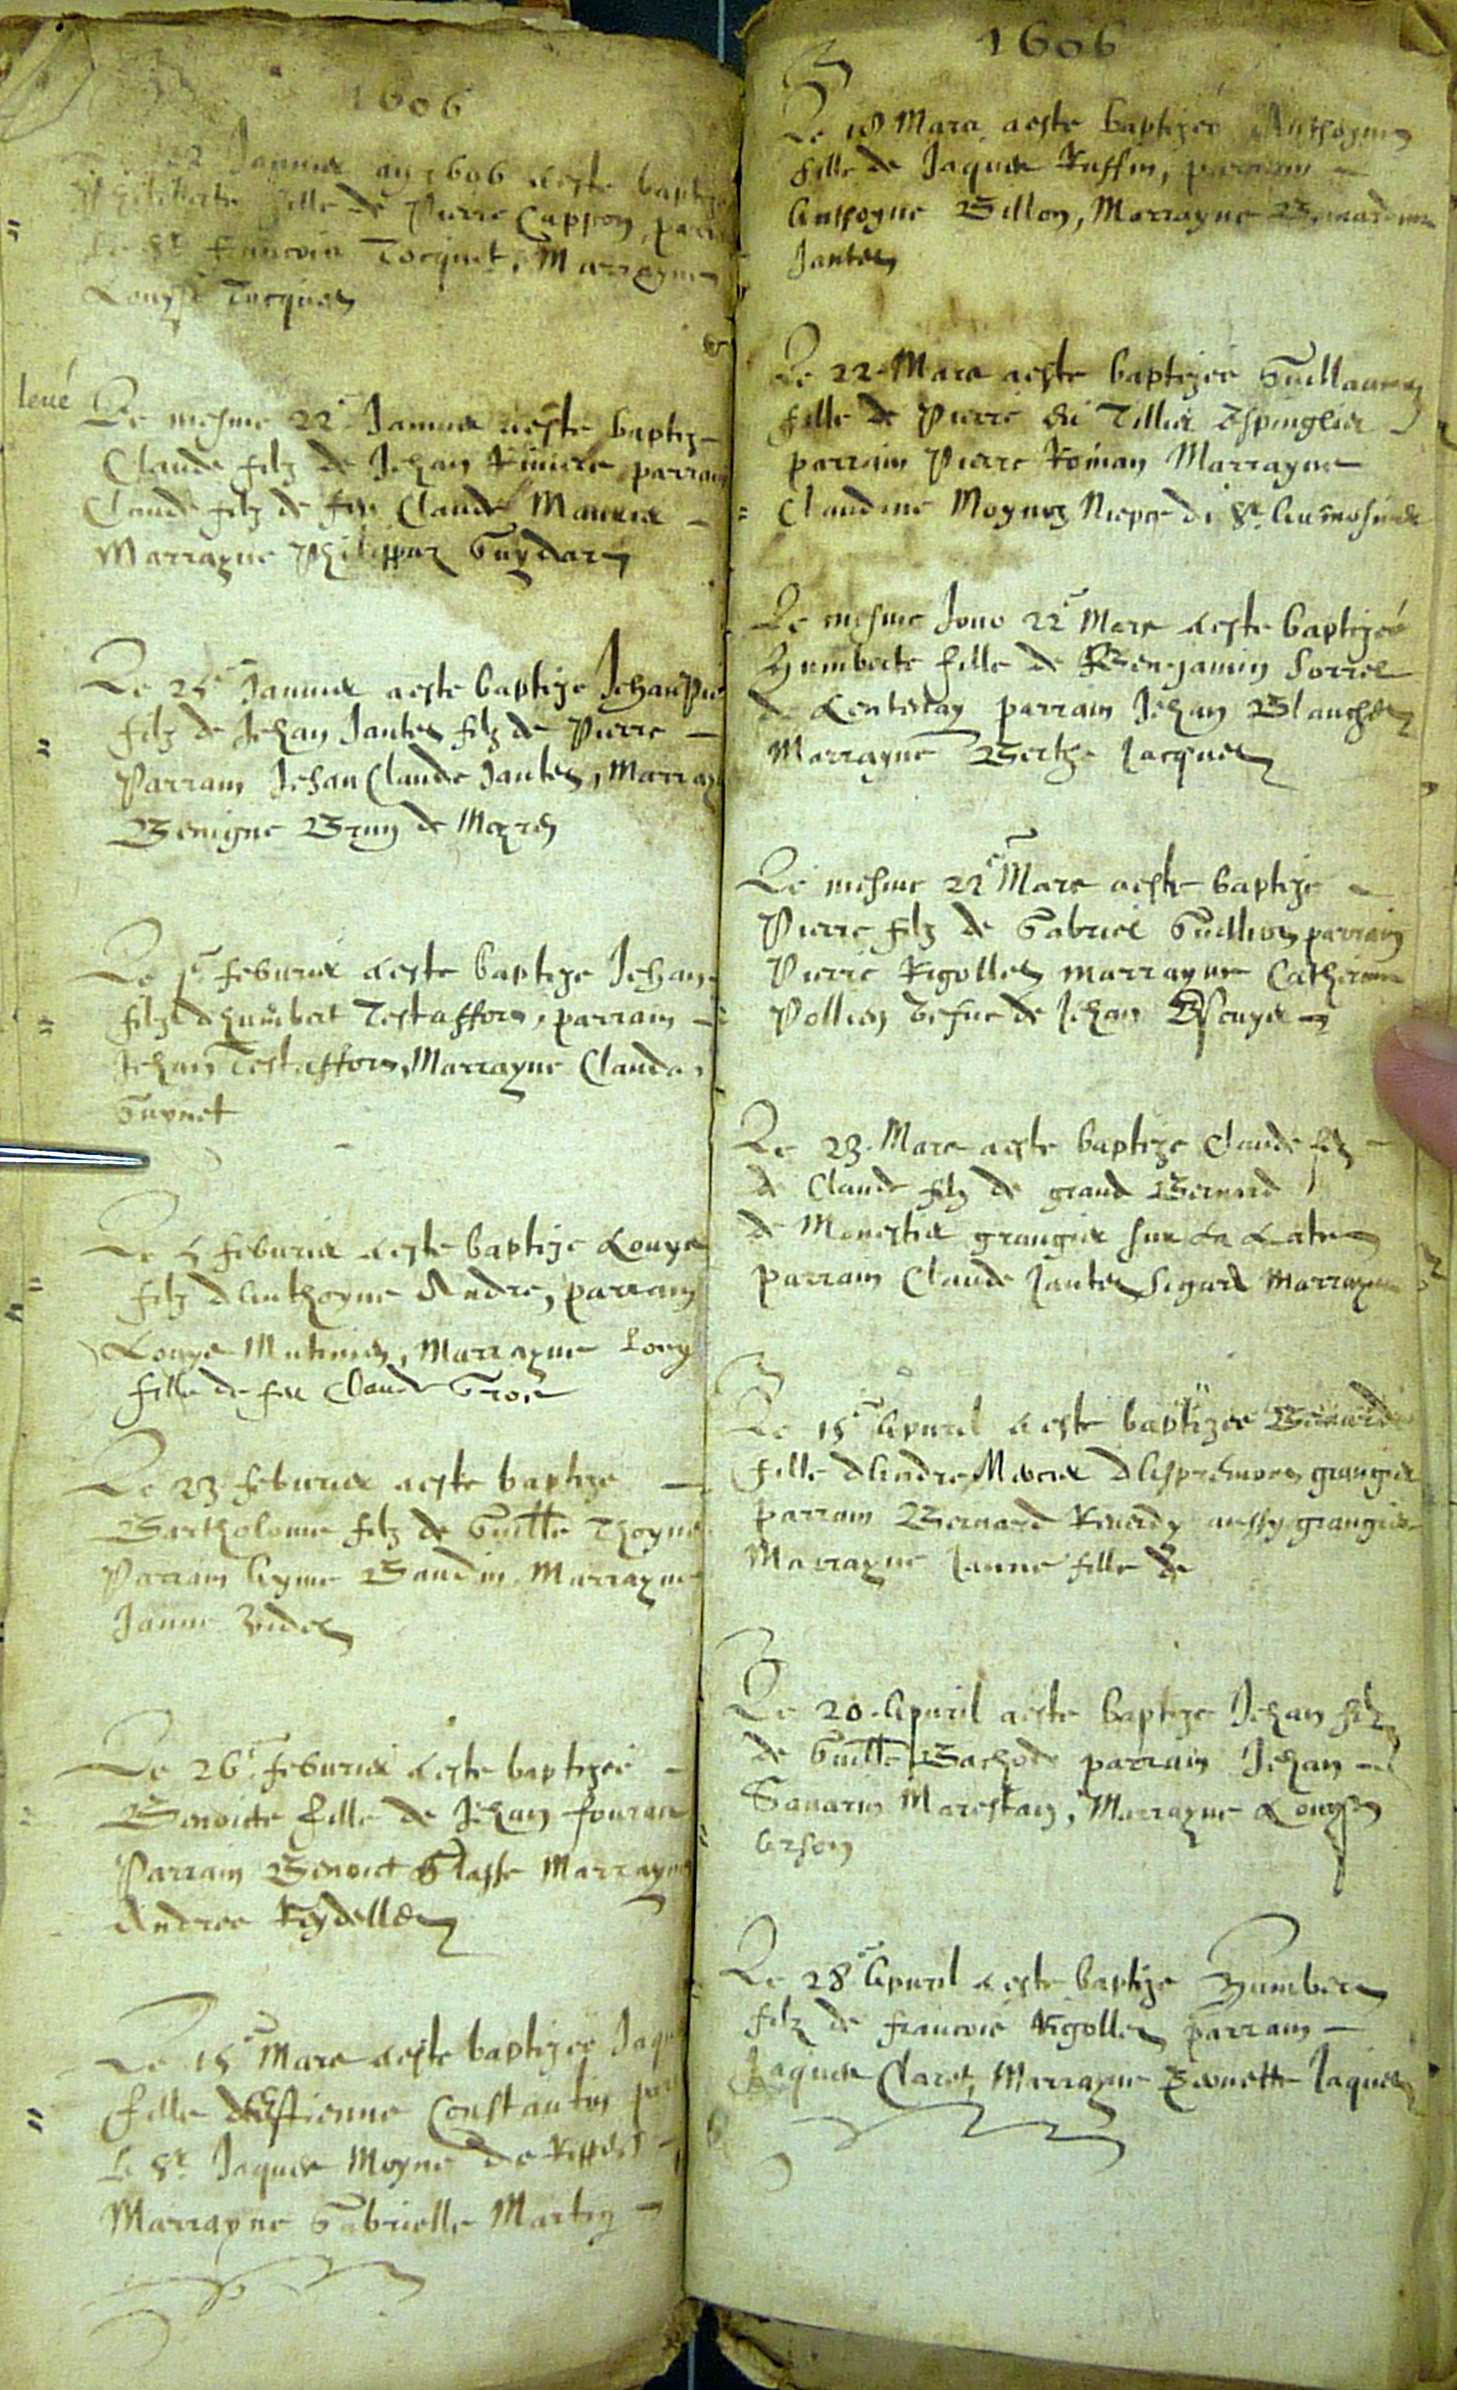 1606
22 Januier an 1606 a este baptize
Philiberte fille de Pierre Cappon, parr
Le Sr Francois Tocquet, Marrayne
Louyse Tocquet
leué
Le mesme 22e Januier a este baptize
Claude filz de Jehan Riviere parrain
Claude filz de feu Claude
Marrayne Philippaz Guydart
Le 25e Januier a este baptize Jehan Pie
filz de Jehan Jantet filz de Pierre
Parrain Jehan Claude Jantet, Marray
Benigne Brun de
Le 1er Feburier a este baptize Jehan
filz d'humbert Testaffort, parrain
Jehan Testaffort, Marrayne Clauda
Guynet
Le 5 Feburier a este baptize Louys
filz d'Anthoyne Andre, parrain
Louys, Marrayne Louy
fille de feu Claude Gros
Le 23 Feburier a este baptize
Bartholome filz de Guille Thoyne
Parrain Ayme Baudin Marrayne
Janne Videt
Le 26e Feburier a este baptizee
Benoicte fille de Jehan
Parrain Benoict Marrayne
Andree Reydellet
Le 15e Mars a este baptizee Jaq
fille d'Estienne Constantin par
Le Sr Jaques Moyne de
Marrayne Gabrielle Martin
1606
Le 18 Mars a este baptizee Anthoyne
fille de Jaques Ruffin, parrain
Anthoyne Billon, Marrayne Bernardine
Jantet
Le 22 Mars a este baptizee Guillauma
fille de Pierre du Tillier Espinglier
parrain Pierre Roman Marrayne
Claudine Moyne Niepce du Sr Aumosnier
Le mesme Jour 22e Mars a este baptizee
Humberte fille de Benjamin Sorrel
de Lentenay parrain Jehan Blanchet
Marrayne Berthe Jacquet
Le mesme 22e Mars a este baptize
Pierre filz de Gabriel Guillion parrain
Pierre Rigollet marrayne Catherine
Pollien vefue de Jehan
Le 23 Mars a este baptize Claude filz
de Claude filz de grand Bernard
de Monestier grangier sur La
parrain Claude Jantet Marrayne
Le 15e Apuril a este baptizee Bernarde
fille d'Andre Mercier grangier
parrain Bernard Reverdy aussy grangier
Marrayne Janne fille de
Le 20 Apuril a este baptize Jehan filz
de Guille Bachod parrain Jehan
Savarin Mareschan, Marrayne Louyse
Arson
Le 28e Apuril a este baptize Humbert
filz de Francois Rigollet parrain
Jaques Claret, Marrayne Jaquet